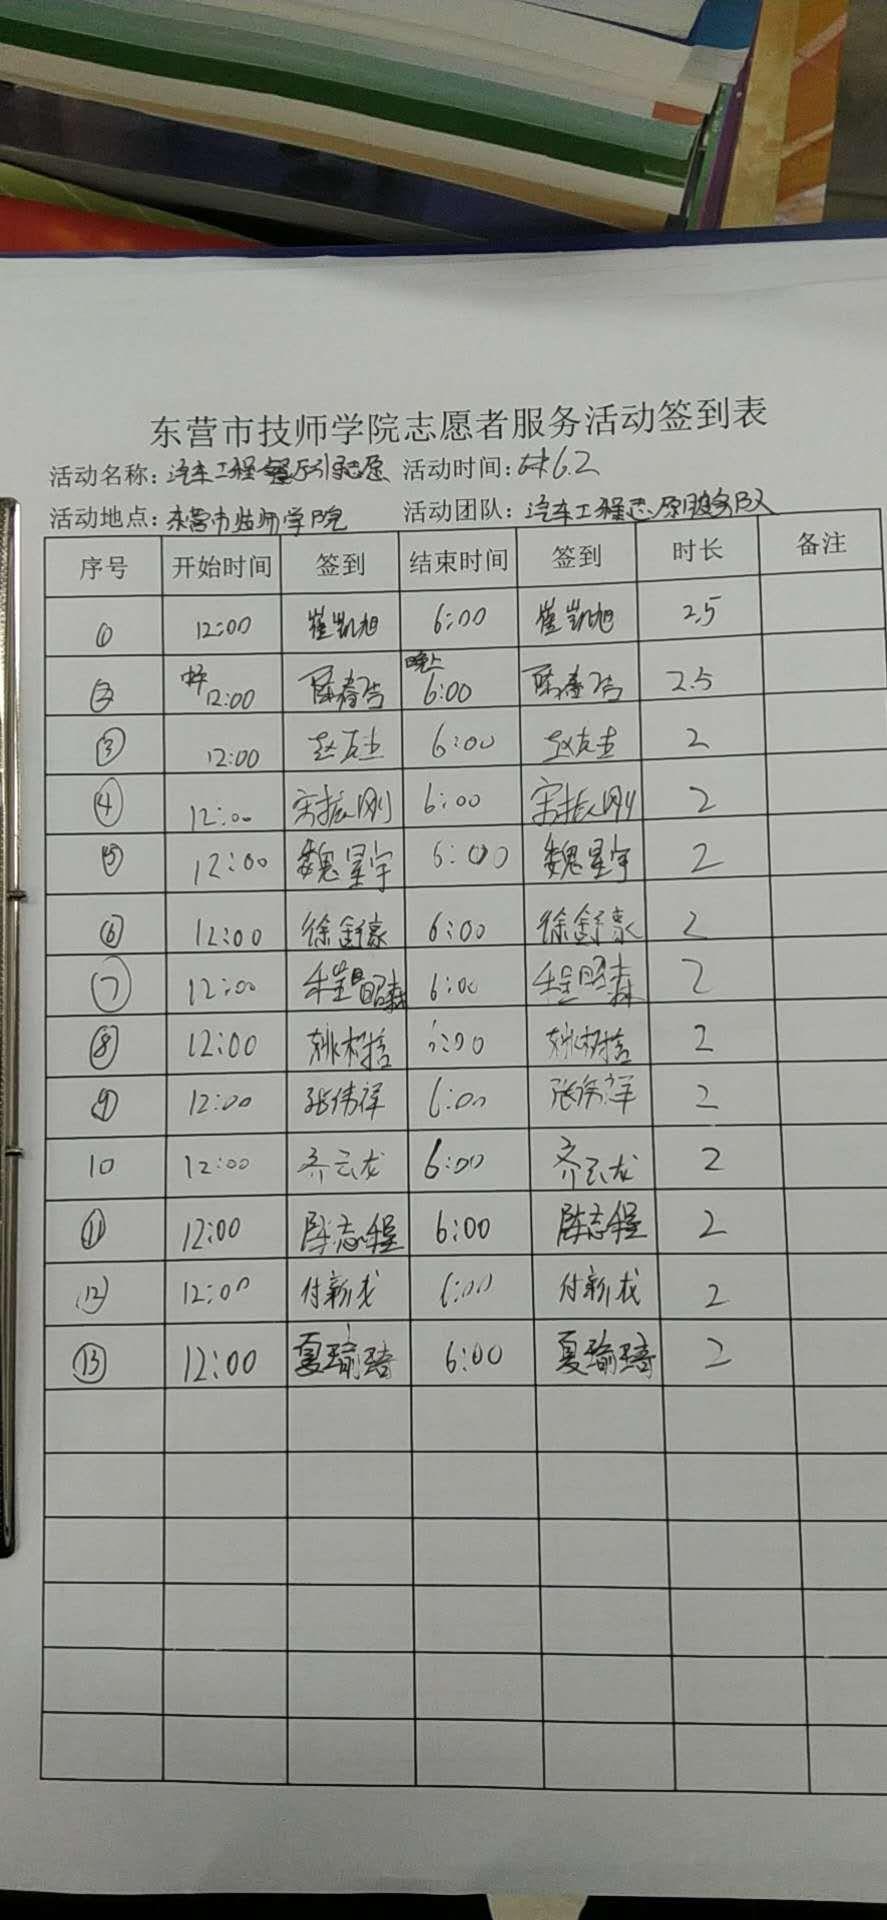 东营市技师学院志愿者服务活动签到表
活动名称：汽车工程餐厅引导志愿 活动时间：6.2
活动地点：东营市技师学院 活动团队：汽车工程志愿服务队
序号 开始时间 签到 结束时间 签到 时长 备注
① 12:00 崔凯旭 6:00 崔凯旭 2.5
② 中午12:00 陈春浩 晚上6:00 陈春浩 2.5
③ 12:00 赵友志 6:00 赵友志 2
④ 12:00 宋振刚 6:00 宋振刚 2
⑤ 12:00 魏星宇 6:00 魏星宇 2
⑥ 12:00 徐舒豪 6:00 徐舒豪 2
⑦ 12:00 程昭森 6:00 程昭森 2
⑧ 12:00 6:00 2
⑨ 12:00 张伟祥 6:00 张伟祥 2
10 12:00 齐云龙 6:00 齐云龙 2
⑪ 12:00 陈志程 6:00 陈志程 2
⑫ 12:00 付新龙 6:00 付新龙 2
⑬ 12:00 夏瑜琦 6:00 夏瑜琦 2